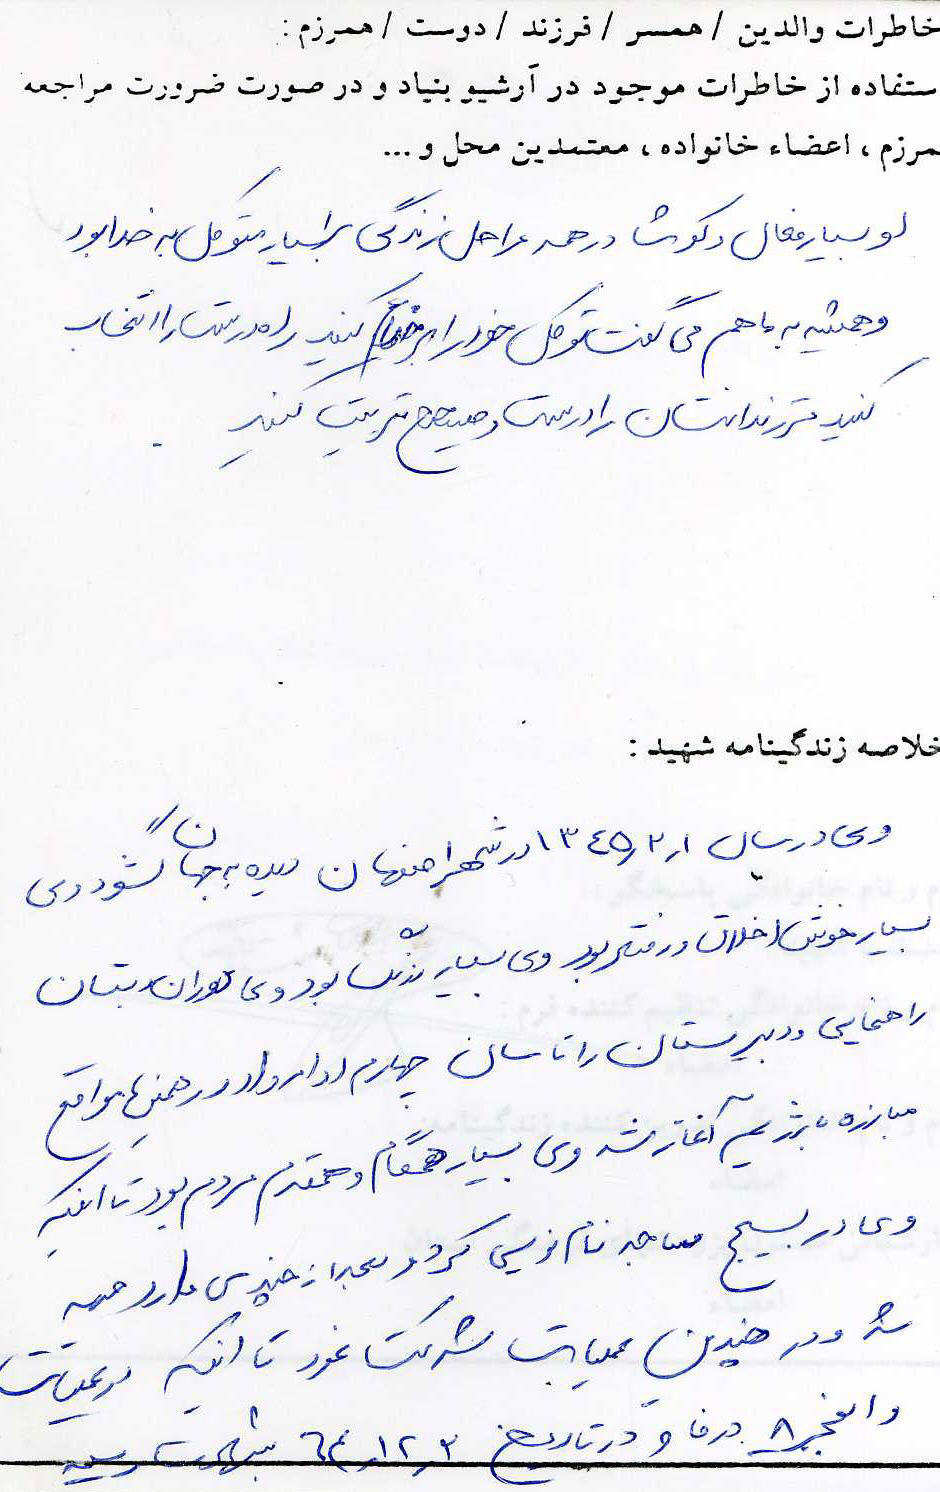 خاطرات والدین / همسر / فرزند / دوست / همرزم :
ستفاده از خاطرات موجود در آرشیو بنیاد و در صورت ضرورت مراجعه
مرزم ، اعضاء خانواده ، معتمدین محل و ...
او بسیار فعال و کوشا در همه مراحل زندگی بسیار متوکل به خدا بود
و همیشه به ما هم می گفت توکل خود را بر خدا کنید راه درست را انتخاب
کنید فرزندانتان را درست و صحیح تربیت کنید .
خلاصه زندگینامه شهید :
وی در سال ۱۳۴۵/۳/۱ در شهر اصفهان دیده به جهان گشود وی
بسیار خوش اخلاق و رفتار بود وی بسیار بود وی دوران دبستان
راهنمایی و دبیرستان را تا سال چهارم ادامه داد و در همین مواقع
مبارزه با رژیم آغاز شد وی بسیار همگام و همقدم مردم بود تا اینکه
وی در بسیج مساجد نام نویسی کرد و بعد از چندی وارد جبهه
شد و در چندین عملیات شرکت نمود تا اینکه در عملیات
والفجر ۸ در فاو در تاریخ ۶۴/۱۲/۳ بشهادت رسید